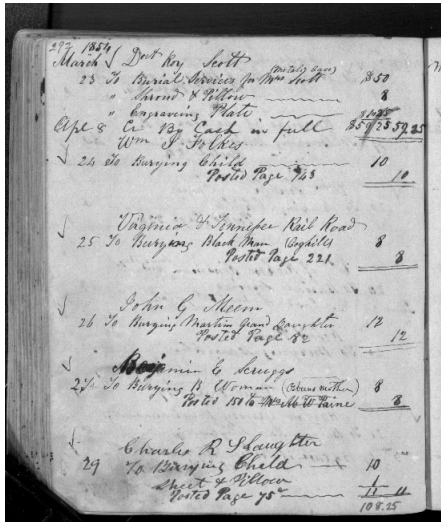 292 1854
March Doct Roy Scott
23 To Burial Services for Mrs Scott (Metalic Case) $50
" Shroud & Pillow 8
" Engraving Plate 1.25
Apl 8 Cr By Cash in full $59.25 59.25
Wm J Folkes
24 To Burying Child 10
Posted Page 143 10
Virginia & Tennissee Rail Road
25 To Burying Black Man (Coghill) 8
Posted Page 221 8
John G Meem
26 To Burying Martin Grand Daughter 12
Posted Page 82 12
Benjamin C Scruggs
27 To Burying B Woman (mother) 8
Posted 150 To Mrs M W Paine 8
Charles R Slaughter
29 To Burying Child 10
Sheet & Pillow 1
Posted Page 75 11 11
108.25